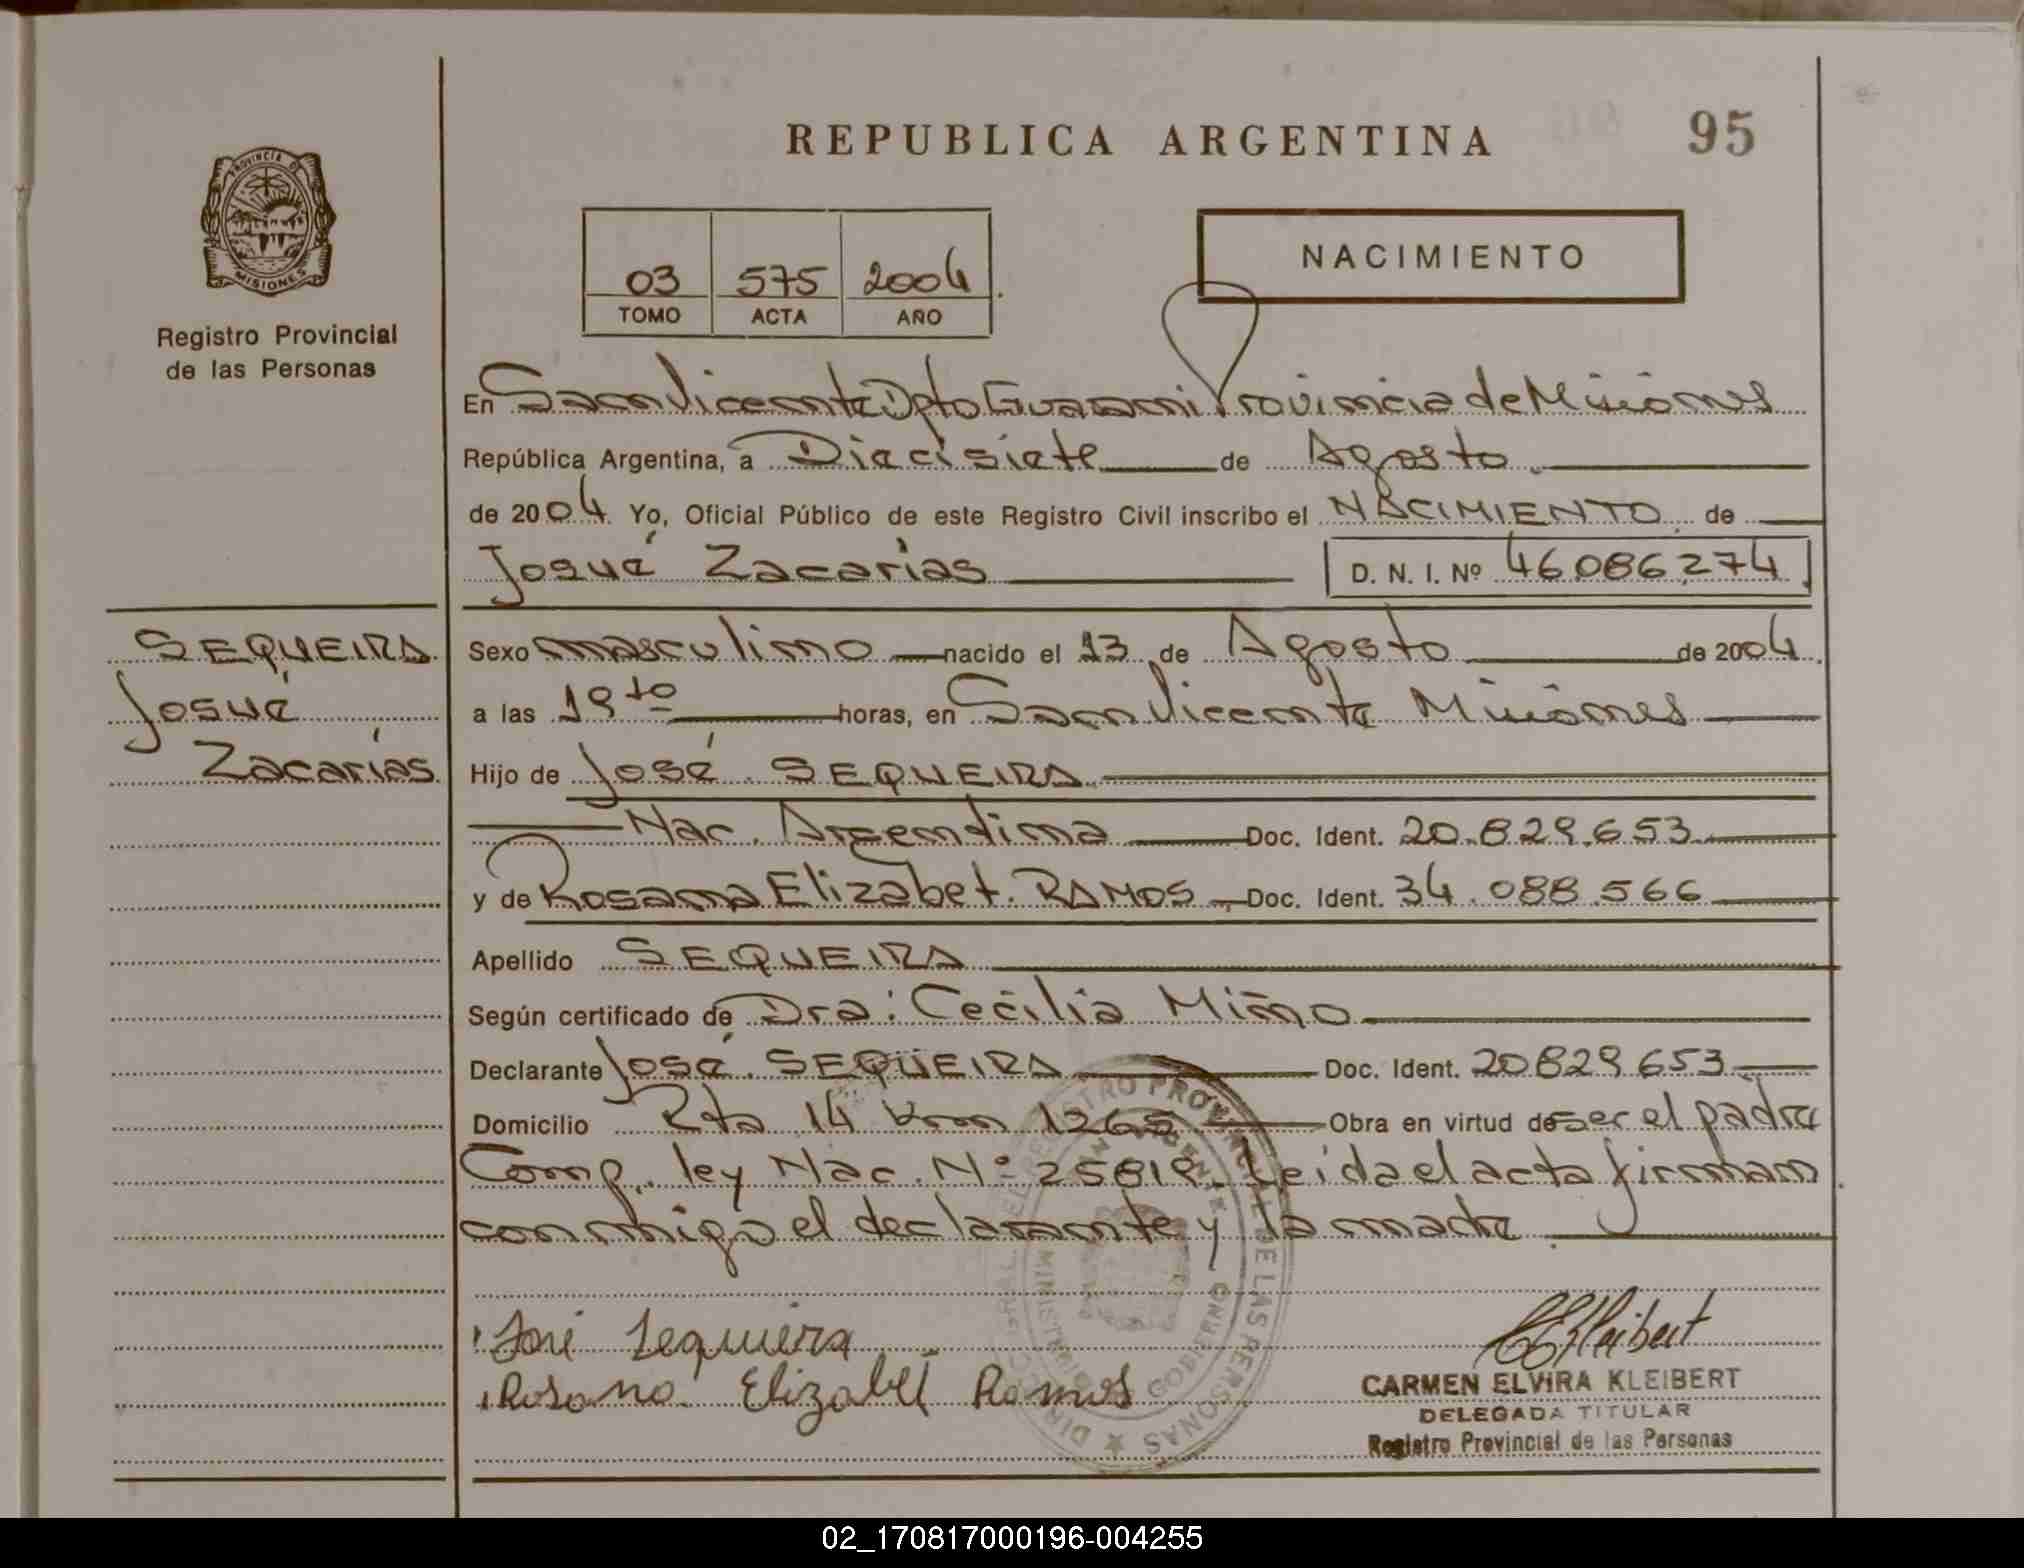 REPUBLICA ARGENTINA
95
PROVINCIA DE
MISIONES
Registro Provincial
de las Personas
03 575 2004
TOMO ACTA AÑO
NACIMIENTO
En San Vicente Dpto Guaraní Provincia de Misiones
República Argentina, a Diecisiete de Agosto
de 2004 Yo, Oficial Público de este Registro Civil inscribo el NACIMIENTO de
Josué Zacarías D. N. I. Nº 46.086.274
SEQUEIRA
Josué
Zacarías
Sexo masculino nacido el 13 de Agosto de 2004
a las 19 to horas, en San Vicente Misiones
Hijo de José SEQUEIRA
Nac. Argentina Doc. Ident. 20.829.653
y de Rosana Elizabet. RAMOS Doc. Ident. 34.088.566
Apellido SEQUEIRA
Según certificado de Dra: Cecilia Miño
Declarante José SEQUEIRA Doc. Ident. 20829653
Domicilio Rta 14 Km 1265 Obra en virtud de ser el padre
Comp. ley Nac. Nº 25819. Leida el acta firman
conmigo el declarante y la madre
José Sequiera
Rosana Elizabet Ramos
CEKleibert
CARMEN ELVIRA KLEIBERT
DELEGADA TITULAR
Registro Provincial de las Personas
02_170817000196-004255